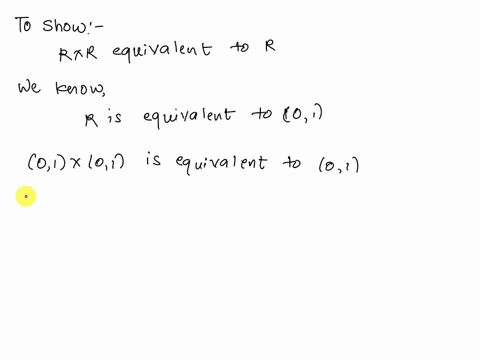 To show:-
R×R equivalent to R
We know,
R is equivalent to (0,1)
(0,1) × (0,1) is equivalent to (0,1)